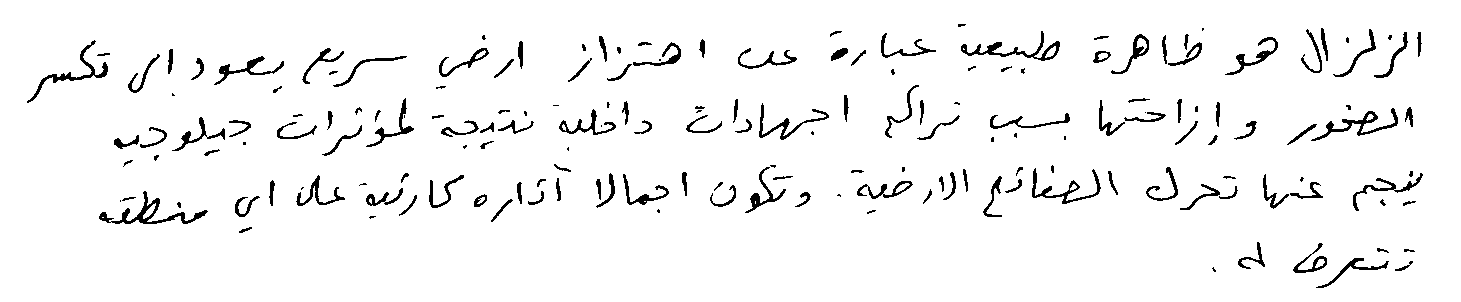 الزلزال هو ظاهرة طبيعية عبارة عن اهتزاز ارضي سريع يعود الى تكسر
الصخور وإزاحتها بسبب تراكم اجهادات داخلية نتيجة لمؤثرات جيلوجيه
ينجم عنها تحرك الصفائح الارضية. وتكون اجمالا آثاره كارثية على اي منطقه
تتعرض له.